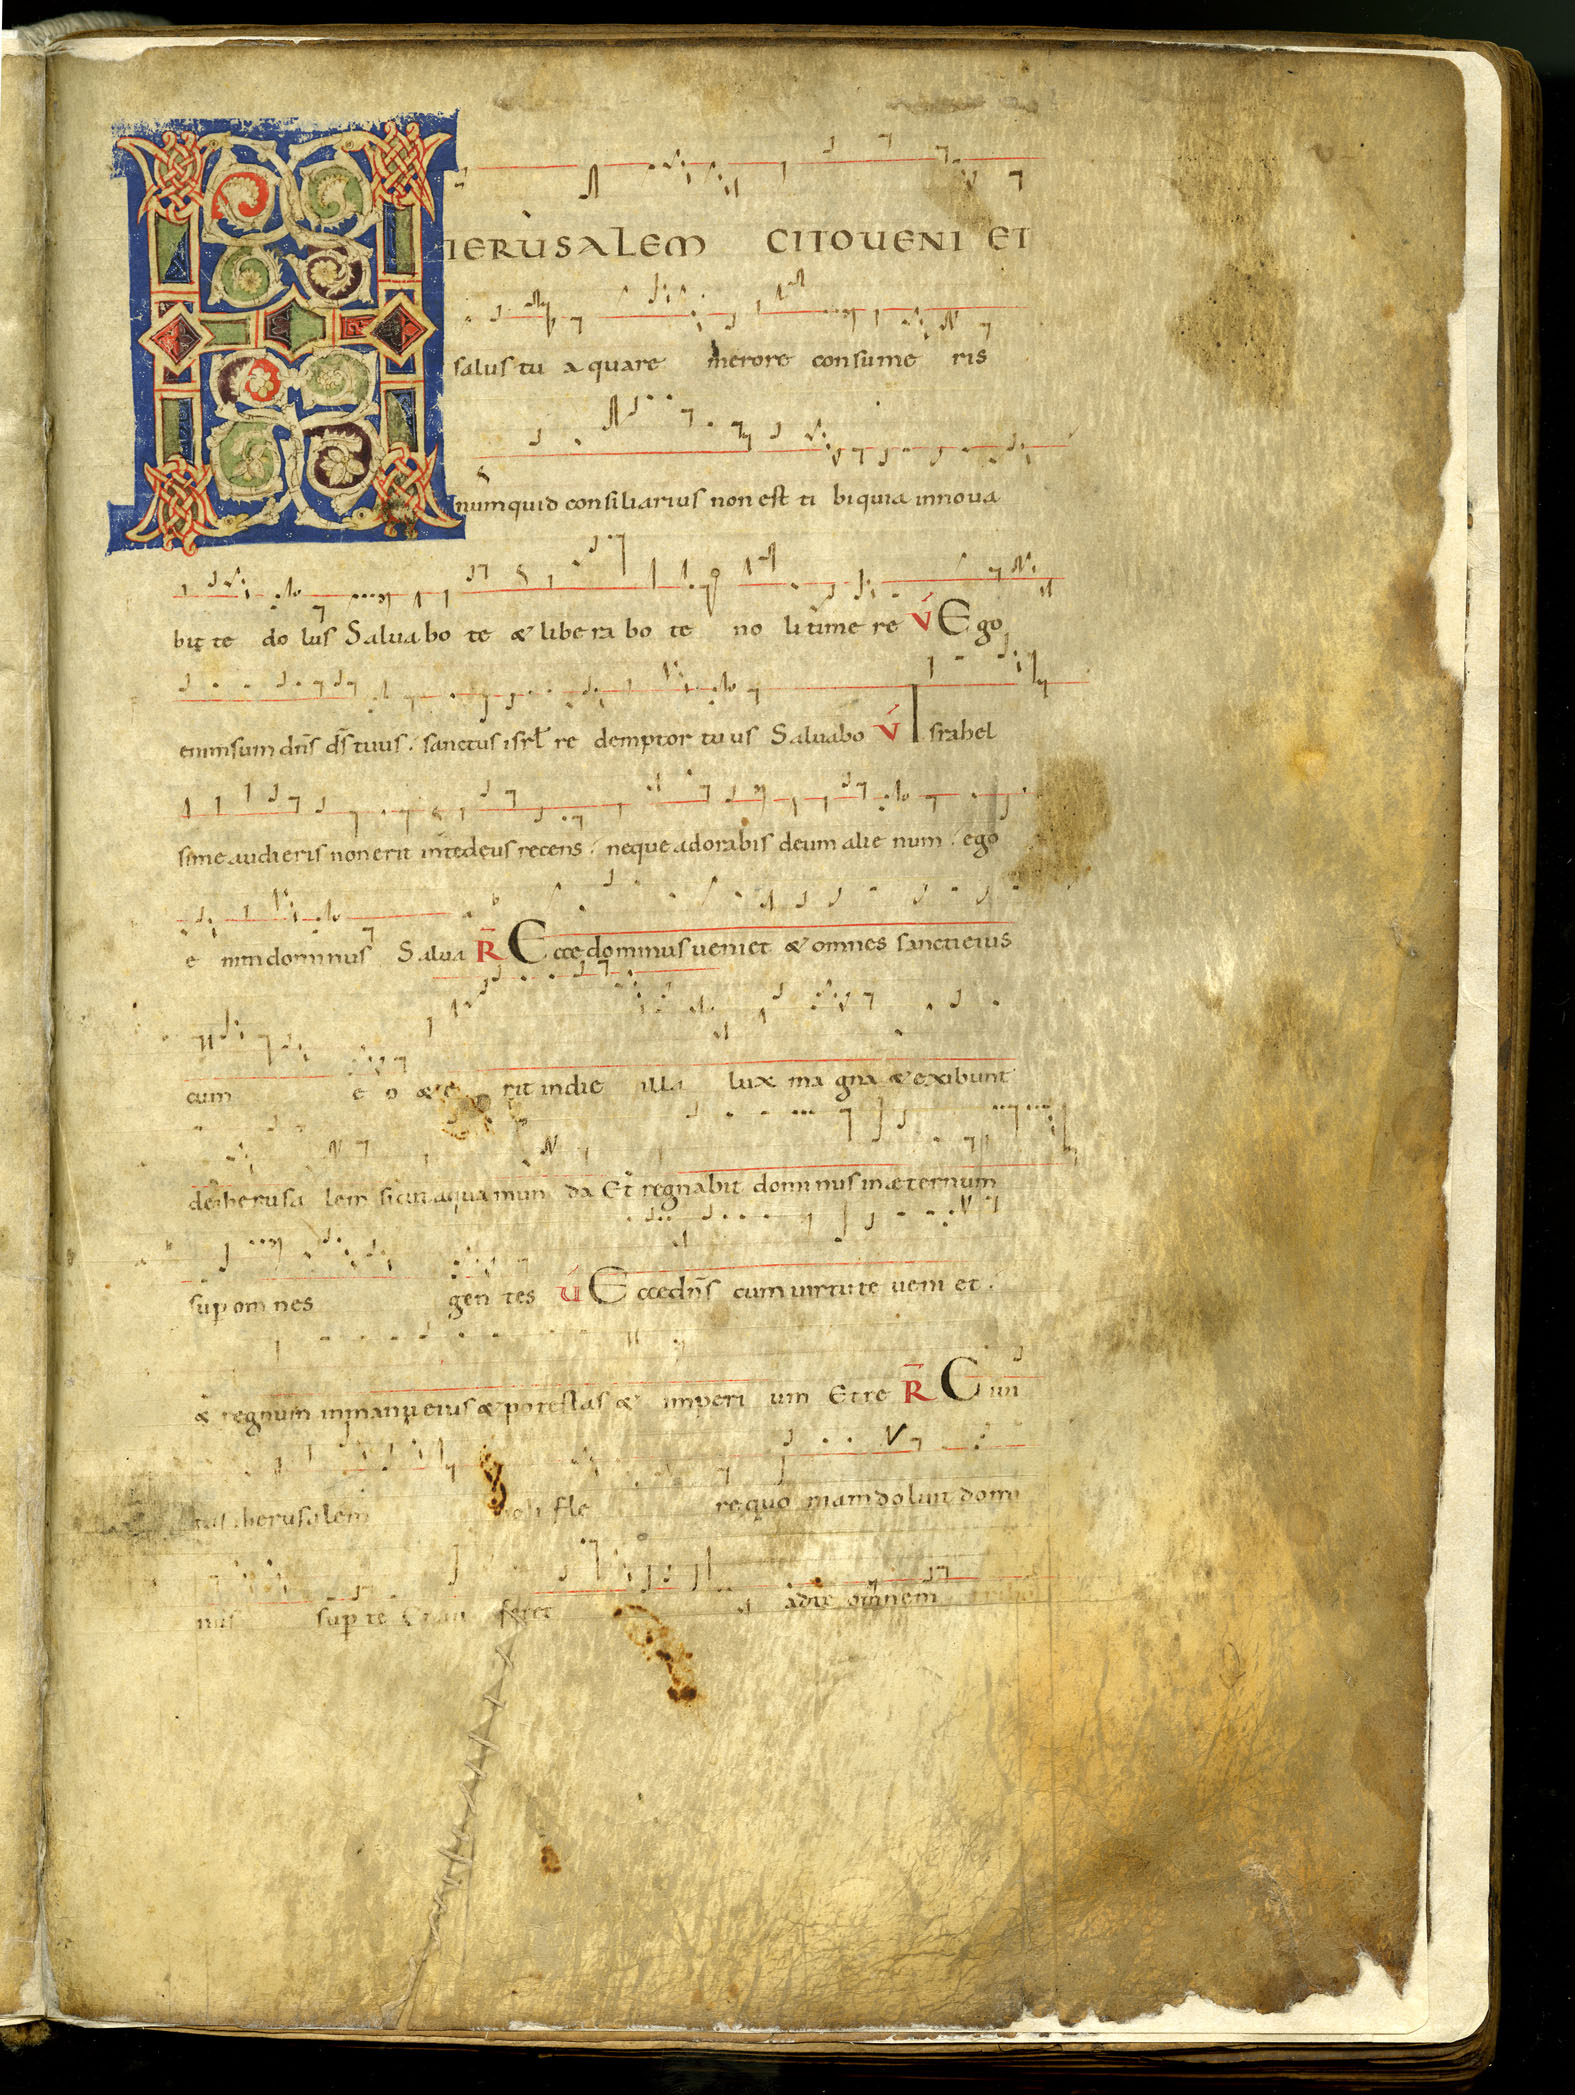 HIERUSALEM CITO UENI ET
salus tu a quare merore consume ris
numquid consiliarius non est ti bi quia innoua
bit te do lus Saluabo te & libera bo te no li time re V Ego
enim sum dñs ds̄ tuus. sanctus isrl̄ re demptor tuus Saluabo V Israhel
si me audieris non erit in te deus recens. neque adorabis deum alie num. ego
e nim dominus Salua R Ecce dominus ueniet & omnes sancti eius
cum e o & e rit in die illa lux ma gna & exibunt
de iherusa lem sicut aqua mun da Et regnabit dominus in æternum
sup om nes gen tes V Ecce dñs cum uirtute ueni et.
& regnum in manu eius & potestas & imperi um Et re R Ciui
iherusalem fle re quo niam doluit domi
nus sup te feret a d te omnem